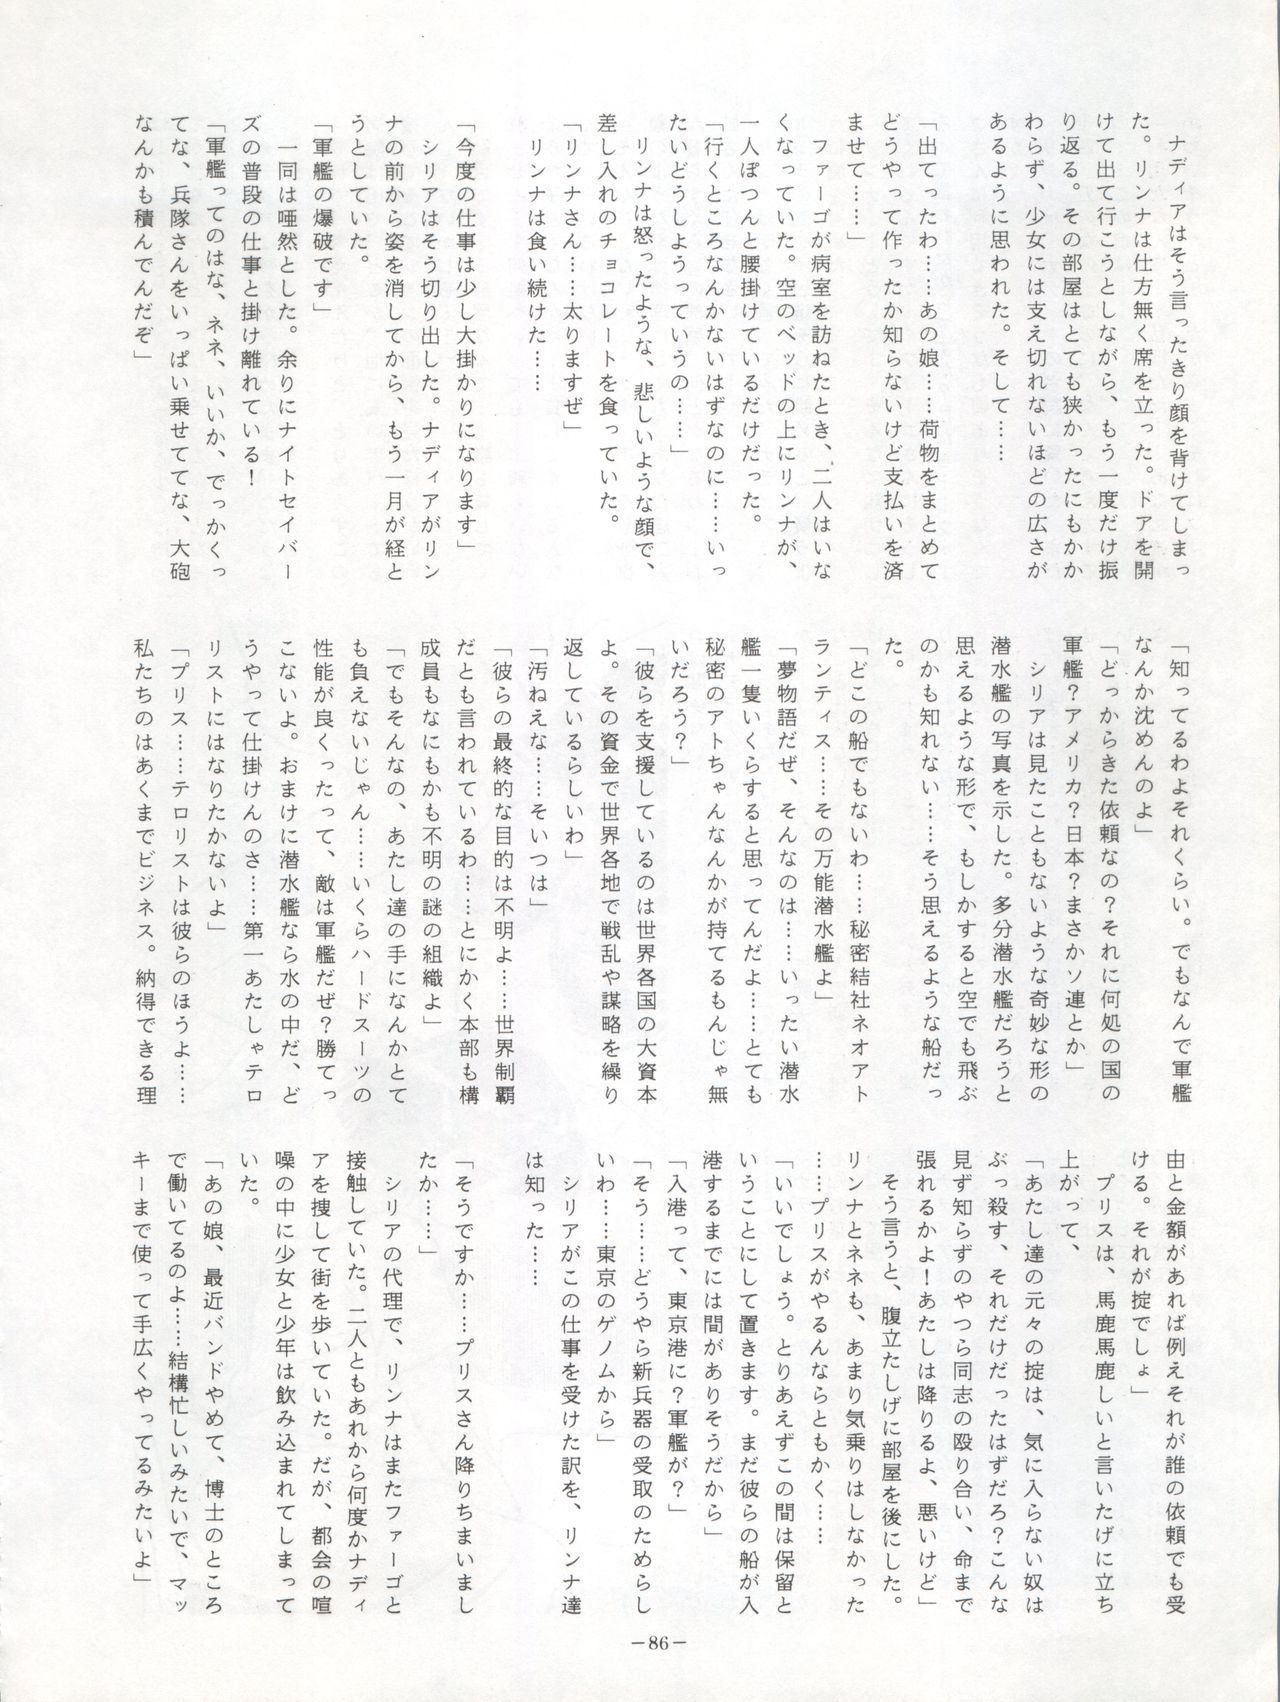 ナディアはそう言ったきり顔を背けてしまっ
た。リンナは仕方無く席を立った。ドアを開
けて出て行こうとしながら、もう一度だけ振
り返る。その部屋はとても狭かったにもかか
わらず、少女には支え切れないほどの広さが
あるように思われた。そして……
「出てったわ……あの娘……荷物をまとめて
どうやって作ったか知らないけど支払いを済
ませて……」
ファーゴが病室を訪ねたとき、二人はいな
くなっていた。空のベッドの上にリンナが、
一人ぽつんと腰掛けているだけだった。
「行くところなんかないはずなのに……いっ
たいどうしようっていうの……」
リンナは怒ったような、悲しいような顔で、
差し入れのチョコレートを食っていた。
「リンナさん……太りますぜ」
リンナは食い続けた……
「今度の仕事は少し大掛かりになります」
シリアはそう切り出した。ナディアがリン
ナの前から姿を消してから、もう一月が経と
うとしていた。
「軍艦の爆破です」
一同は唖然とした。余りにナイトセイバー
ズの普段の仕事と掛け離れている！
「軍艦ってのはな、ネネ、いいか、でっかくっ
てな、兵隊さんをいっぱい乗せててな、大砲
なんかも積んでんだぞ」
「知ってるわよそれくらい。でもなんで軍艦
なんか沈めんのよ」
「どっからきた依頼なの？それに何処の国の
軍艦？アメリカ？日本？まさかソ連とか」
シリアは見たこともないような奇妙な形の
潜水艦の写真を示した。多分潜水艦だろうと
思えるような形で、もしかすると空でも飛ぶ
のかも知れない……そう思えるような船だっ
た。
「どこの船でもないわ……秘密結社ネオアト
ランティス……その万能潜水艦よ」
「夢物語だぜ、そんなのは……いったい潜水
艦一隻いくらすると思ってんだよ……とても
秘密のアトちゃんなんかが持てるもんじゃ無
いだろう？」
「彼らを支援しているのは世界各国の大資本
よ。その資金で世界各地で戦乱や謀略を繰り
返しているらしいわ」
「汚ねえな……そいつは」
「彼らの最終的な目的は不明よ……世界制覇
だとも言われているわ……とにかく本部も構
成員もなにもかも不明の謎の組織よ」
「でもそんなの、あたし達の手になんかとて
も負えないじゃん……いくらハードスーツの
性能が良くったって、敵は軍艦だぜ？勝てっ
こないよ。おまけに潜水艦なら水の中だ、ど
うやって仕掛けんのさ……第一あたしゃテロ
リストにはなりたかないよ」
「プリス……テロリストは彼らのほうよ……
私たちのはあくまでビジネス。納得できる理
由と金額があれば例えそれが誰の依頼でも受
ける。それが掟でしょ」
プリスは、馬鹿馬鹿しいと言いたげに立ち
上がって、
「あたし達の元々の掟は、気に入らない奴は
ぶっ殺す、それだけだったはずだろ？こんな
見ず知らずのやつら同志の殴り合い、命まで
張れるかよ！あたしは降りるよ、悪いけど」
そう言うと、腹立たしげに部屋を後にした。
リンナとネネも、あまり気乗りはしなかった
……プリスがやるんならともかく……
「いいでしょう。とりあえずこの間は保留と
いうことにして置きます。まだ彼らの船が入
港するまでには間がありそうだから」
「入港って、東京港に？軍艦が？」
「そう……どうやら新兵器の受取のためらし
いわ……東京のゲノムから」
シリアがこの仕事を受けた訳を、リンナ達
は知った……
「そうですか……プリスさん降りちまいまし
たか……」
シリアの代理で、リンナはまたファーゴと
接触していた。二人ともあれから何度かナディ
アを捜して街を歩いていた。だが、都会の喧
噪の中に少女と少年は飲み込まれてしまって
いた。
「あの娘、最近バンドやめて、博士のところ
で働いてるのよ……結構忙しいみたいで、マッ
キーまで使って手広くやってるみたいよ」
－86－